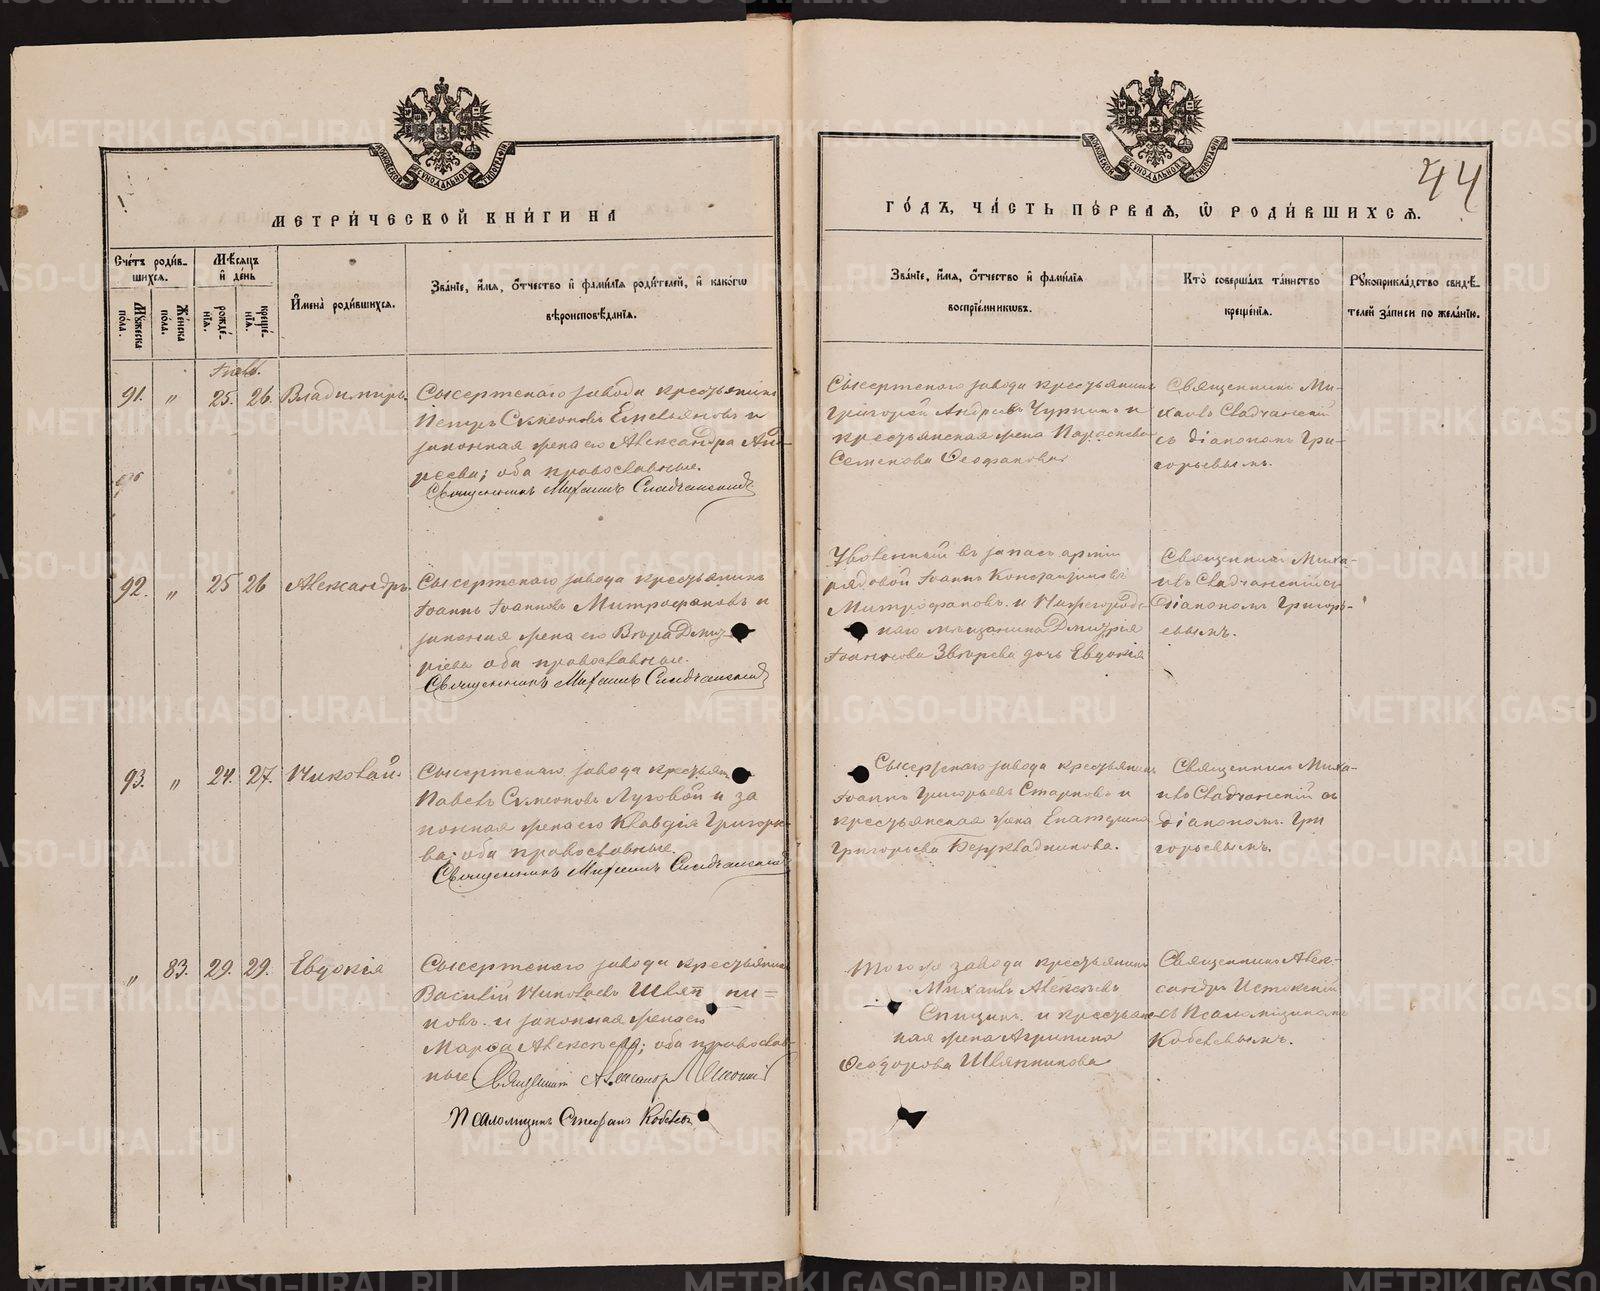 МЕТРИ́ЧЕСКОЙ КНИ́ГИ НА
ГО́ДЪ, ЧА́СТЬ ПЕ́РВАѦ, Ѡ҆ РОДИ́ВШИХСѦ.
44
Сче́тъ роди́в-
шихсѧ.
Мꙋ́жеска по́ла.
Же́нска по́ла.
Мѣ́сѧцъ и҆ де́нь
рожде́-
нїѧ.
креще́-
нїѧ.
И҆мена̀ роди́вшихсѧ.
Зва́нїе, и҆́мѧ, ѻ҆́тчество и҆ фами́лїѧ роди́телей, и҆ како́гѡ
вѣроисповѣ́данїѧ.
Зва́нїе, и҆́мѧ, ѻ҆́тчество и҆ фами́лїѧ
воспрїе́мникѡвъ.
Кто̀ соверша́лъ та́инство
креще́нїѧ.
Рꙋкоприкла́дство свидѣ́-
телей за́писи по жела́нїю.
91. " 25. 26. Владимиръ
Сысертскаго завода крестьянинъ
Петръ Симеоновъ Емельяновъ и
законная жена его Александра Ан-
реева; оба православные.
Священникъ Михаилъ Сладчанский
Сысертскаго завода крестьянинъ
Григорій Андреевъ Чуркинъ и
крестьянская жена Параскева
Семенова Феофанова
Священникъ Ми-
хаилъ Сладчанский
съ діакономъ Гри-
горьевымъ.
92. " 25 26 Александръ.
Сысертскаго завода крестьянинъ
Іоаннъ Іоанновъ Митрофановъ и
законная жена его Вѣра Дмит-
ріева оба православные.
Священникъ Михаилъ Сладчанский
Уволенный въ запасъ арміи
рядовой Іоаннъ Константиновъ
Митрофановъ и Нижегородс-
каго мѣщанина Дмитрія
Іоаннова Звѣрева дочь Евдокія
Священникъ Миха-
илъ Сладчанский съ
діакономъ Григорь-
евымъ.
93. " 24. 27. Николай.
Сысертскаго завода крестьян
Павелъ Симеоновъ Луговой и за
конная жена его Клавдія Григорье-
ва; оба православные.
Священникъ Михаилъ Сладчанский
Сысертскаго завода крестьянинъ
Іоаннъ Григорьевъ Старковъ и
крестьянская жена Екатерина
Григорьева Берукладникова.
Священникъ Миха-
илъ Сладчанский съ
діакономъ Гри
горьевымъ.
" 83. 29. 29. Евдокія
Сысертскаго завода крестьянинъ
Василій Николаевъ Шляп ни=
ковъ. и законная жена его
Марѳа Алексѣева; оба православ-
ные Священникъ Александръ
Псаломщикъ Стефанъ Кобелевъ
Того же завода крестьянинъ
Михаилъ Алексѣевъ
Спицинъ. и крестьян-
ская жена Агрипина
Ѳеодорова Шляпникова
Священникъ Алек-
сандръ Истокский
съ Псаломщикомъ
Кобелевымъ.
METRIKI.GASO-URAL.RU